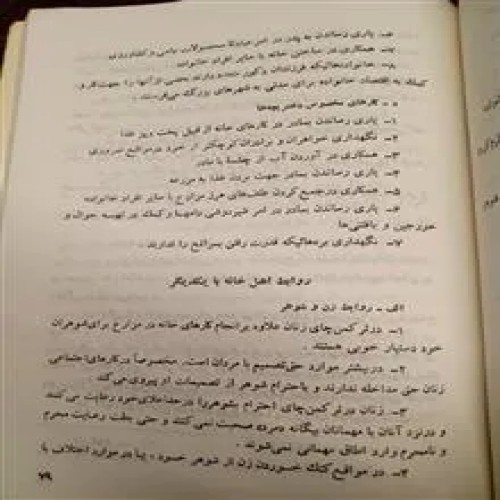 ۶ـ یاری رساندن به پدر در امر مبادلهٔ محصولات یدی و کشاورزی.
۷ـ همکاری در ساختن خانه با سایر افراد خانواده.
۸ـ خانواده‌هائیکه فرزندان ذکور متعدد دارند بعضی از آنها را جهت کار و
کمک به اقتصاد خانواده برای مدتی به شهرهای بزرگ می‌فرستند.
ه ـ کارهای مخصوص دختر بچه‌ها
۱ـ یاری رساندن بمادر در کارهای خانه از قبیل پخت و پز غذا
۲ـ نگهداری خواهران و برادران کوچکتر از خود در مواقع ضروری
۳ـ همکاری در آوردن آب از چشمه با مادر
۴ـ یاری رساندن بمادر جهت بردن غذا به مزرعه
۵ـ همکاری در جمیع کردن علف‌های هرز مزارع با سایر افراد خانواده
۶ـ یاری رساندن بمادر در امر شیردوشی دامها و کمک در تهیه جوال و
خورجین و بافتنی‌ها
۷ـ نگهداری بره‌هائیکه قدرت رفتن بمراتع را ندارند.
روابط اهل خانه با یکدیگر
الف ـ روابط زن و شوهر
۱ـ در لر کمن‌چای زنان علاوه بر انجام کارهای خانه در مزارع برای شوهران
خود دستیار خوبی هستند.
۲ـ در بیشتر موارد حق تصمیم با مردان است، مخصوصاً در کارهای اجتماعی
زنان حق مداخله ندارند و با احترام شوهر از تصمیمات او پیروی می‌کند.
۳ـ زنان در لر کمن‌چای احترام بشوهر را در حد اعلای خود رعایت می‌کنند
و در نزد آنان با مهمانان بیگانه صحبت نمی‌کنند و حتی بعلت رعایت محرم
و نامحرم وارد اطاق مهمانی نمی‌شوند.
۴ـ در مواقع کتک خوردن زن از شوهر خود، یا در موارد اختلاف با
۷۹